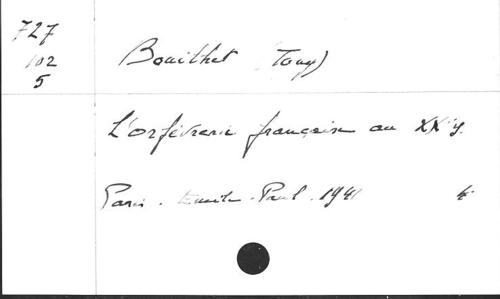 727
102
5
Bouilhet (Tony)
L'orfèvrerie française au XXe s.
Paris. Emile-Paul. 1941 4°